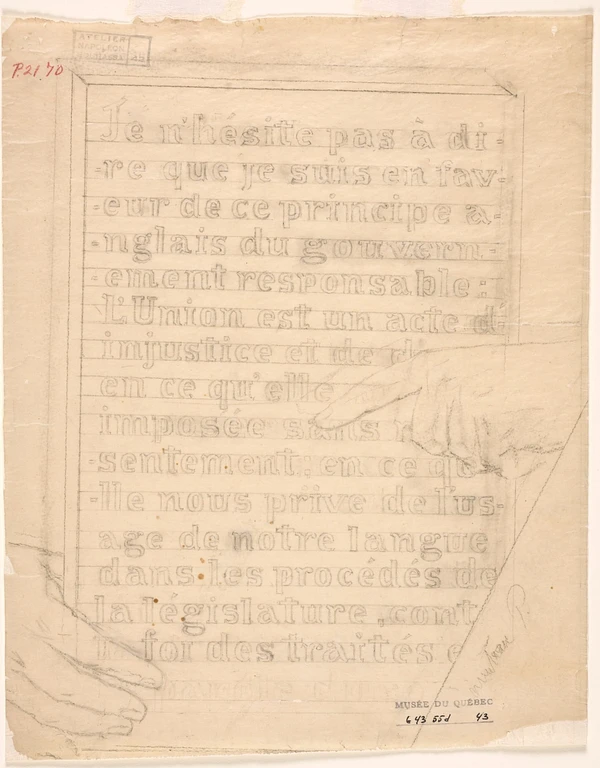 ATELIER
NAPOLÉON
BOURASSA
P.21.70
Je n'hésite pas à di-
-re que je suis en fav-
-eur de ce principe a-
-nglais du gouvern-
-ement responsable:
L'Union est un acte d'
injustice et de d
en ce qu'elle
imposée sans
sentement; en ce qu
-lle nous prive de l'us-
age de notre langue
dans les procédés de
la législature, cont
foi des traités e
MUSÉE DU QUÉBEC
643 55d 43